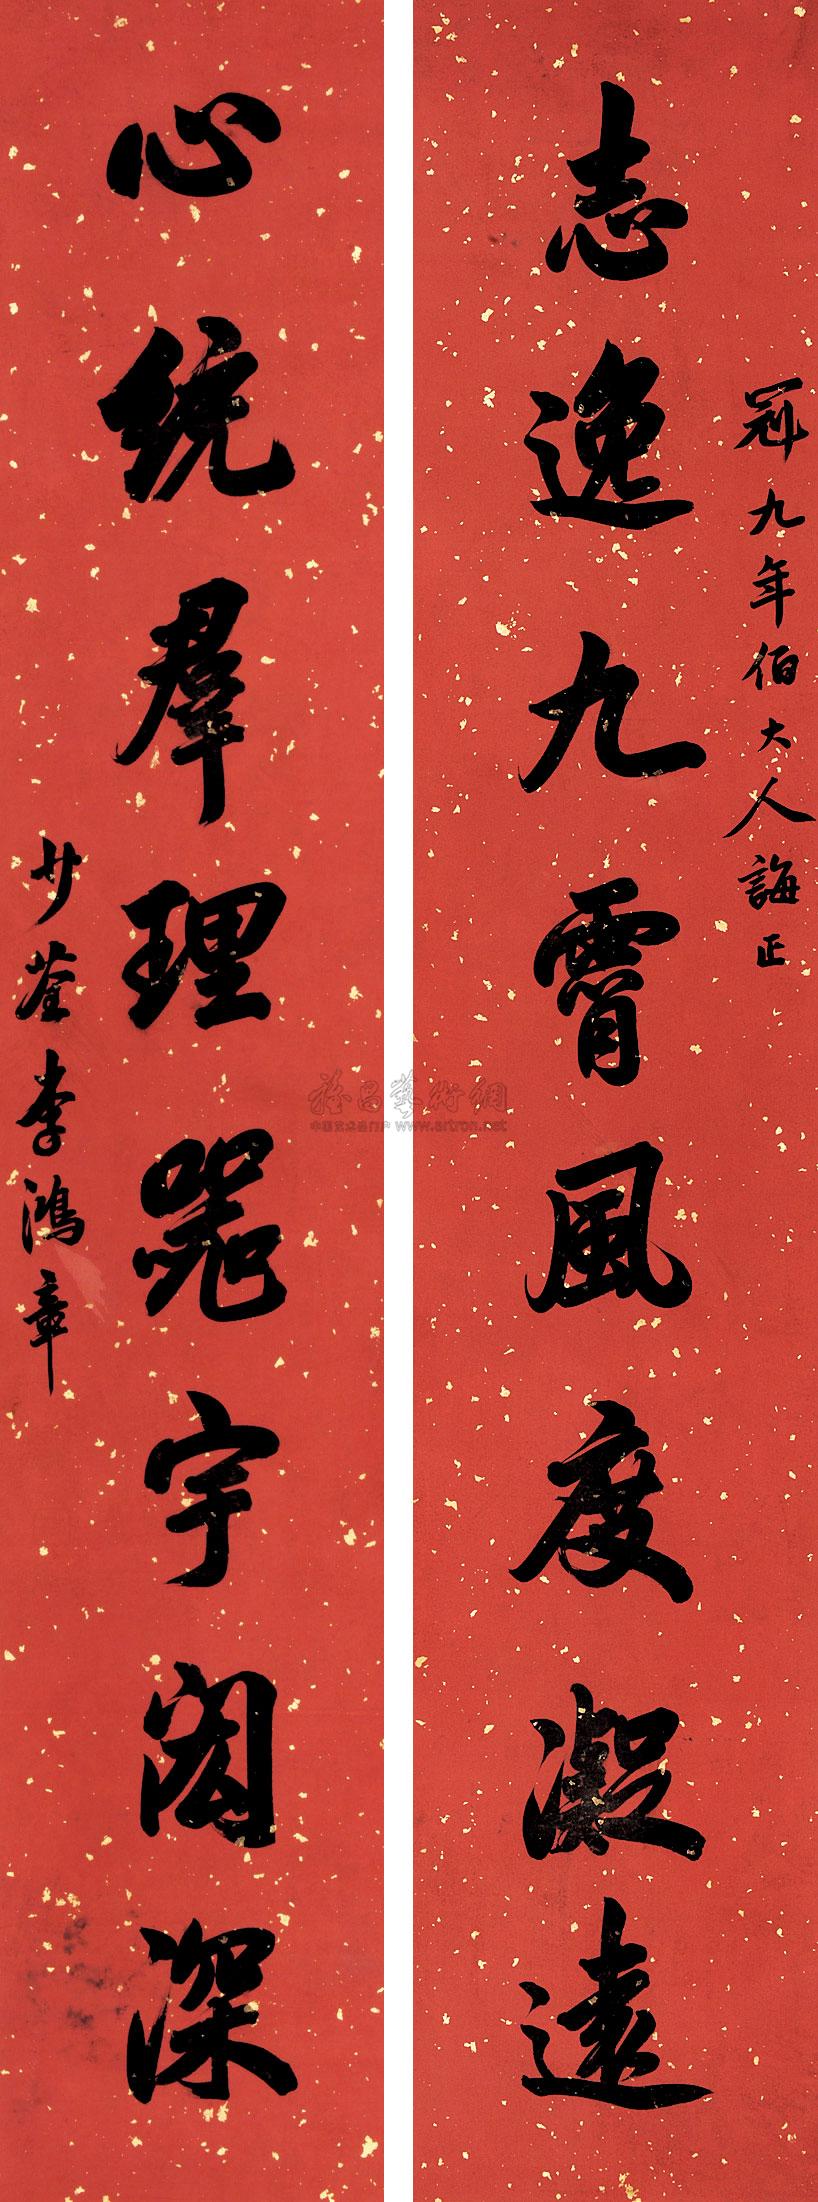 冠九年伯大人誨正
志逸九霄風度凝遠
心統羣理器宇閎深
少荃李鴻章
雅昌藝術網
中国艺术品门户 www.artron.net